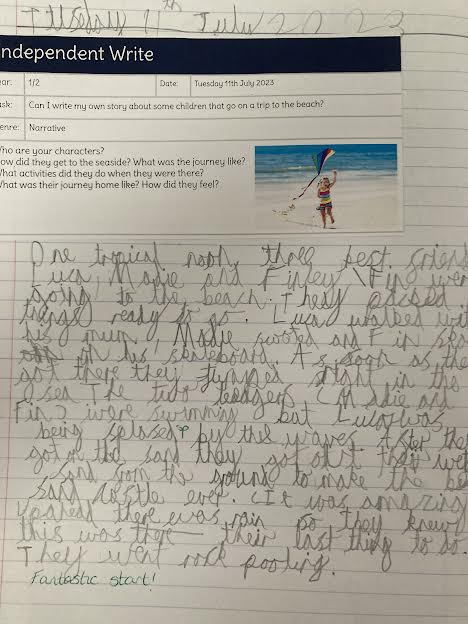 Tuesday 11th July 2023
ndependent Write
ear: 1/2 Date: Tuesday 11th July 2023
ask: Can I write my own story about some children that go on a trip to the beach?
enre: Narrative
ho are your characters?
ow did they get to the seaside? What was the journey like?
hat activities did they do when they were there?
hat was their journey home like? How did they feel?
One tropical noon, three best friend
Luca, Madie and Finley \ Fin wer
going to the beach. They packed
things ready to go. Luca walked wi
his mum, Madie scooted and Fin
on his skateboard. As soon as the
got there they jumped in the
sea. The two (Madie and
Fin) were swimming but was
being by the waves. After the
got on the sand they got out
sand from the ground to make the be
sand castle ever. (It was amazing
there was rain so they knew
this was their last thing to do.
They went rock pooling.
Fantastic start!